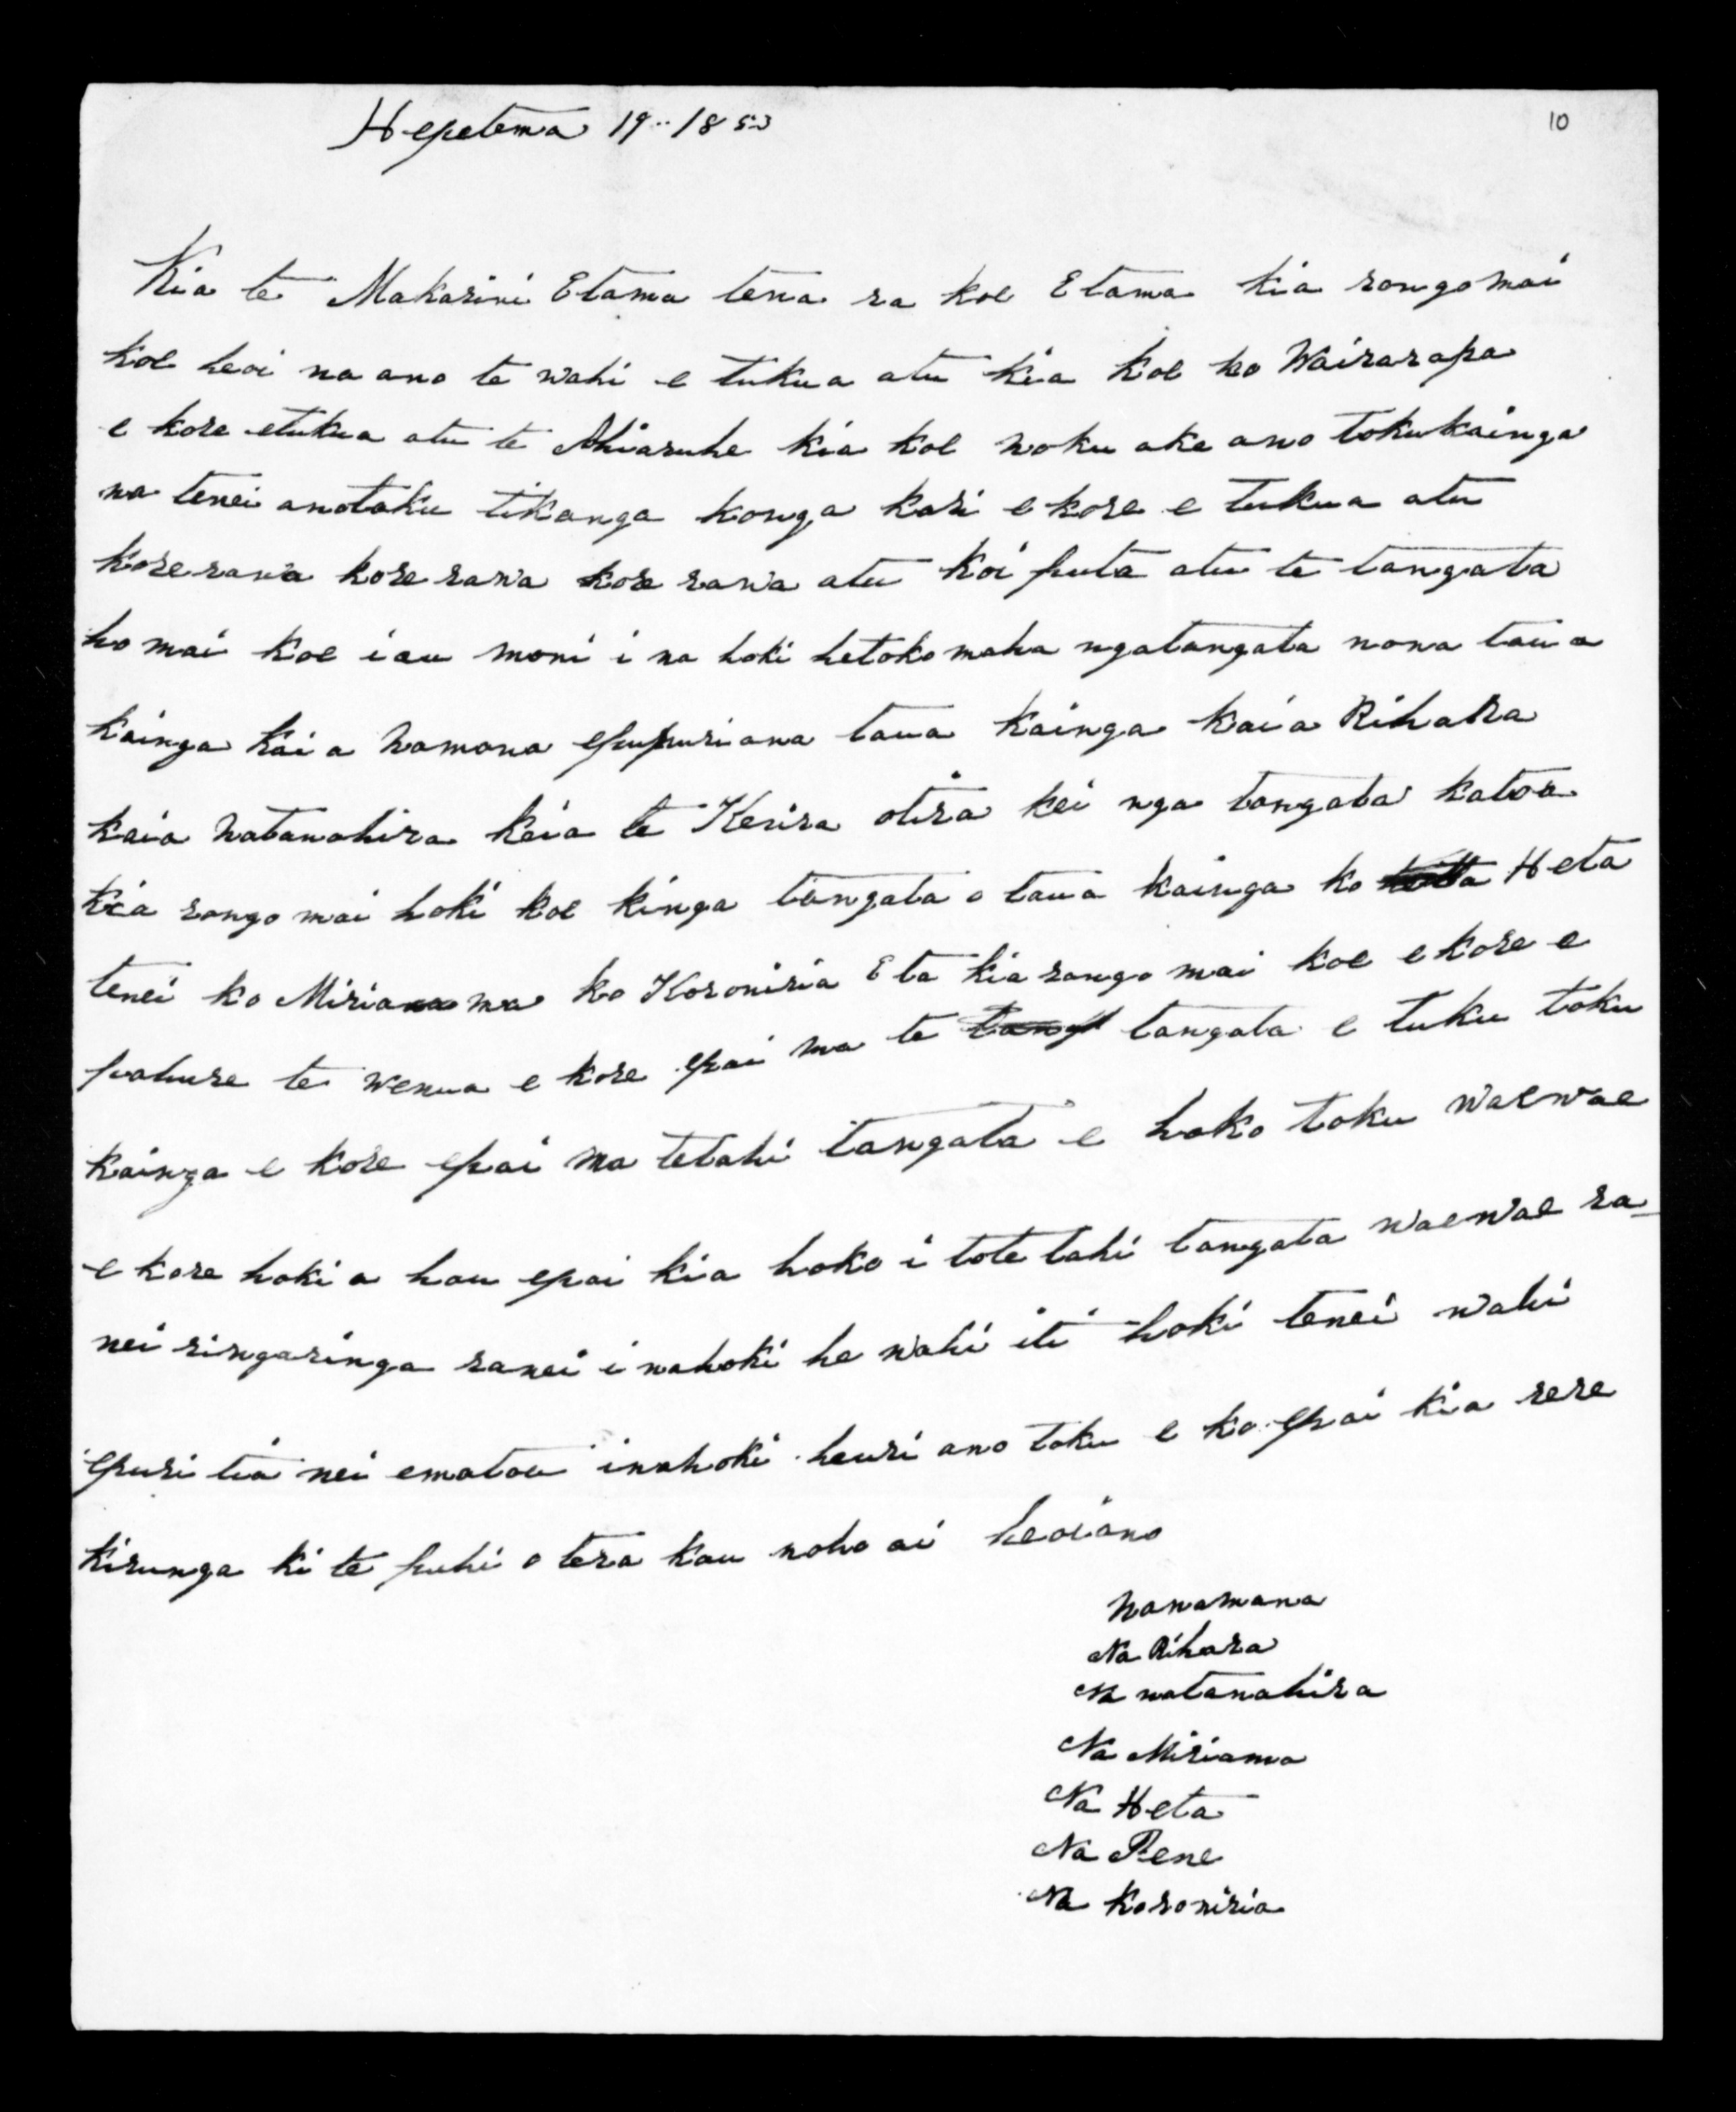 Hepetema 19.. 1853
10
Kia te Makarini Etama tena ra koe Etama kia rongo mai
koe heoi na ano te wahi e tukua atu kia koe ko Wairarapa
e kore etukua atu te Ahiaruhe kia koe noku ake ano tokukainga
na tenei anotaku tikanga konga kari e kore e tukua atu
korerawa kore rawa kore rawa atu koi puta atu te tangata
ho mai koe i au moni i na hoki hetoko maha ngatangata nona taua
kainga kai a hamona epupuri ana taua kainga kai a Rihara
kaia natanahira keia te Kerira otira kei nga tangata katoa
kia rongo mai hoki koe kinga tangata o taua kainga ko Heta
tenei ko Miriama ko Koroniria E ta kia rongo mai koe e kore e
pahure te wenua e kore epai ma te tangata e tuku toku
kainga e kore epai ma tetahi tangata e hoko toku waewae
e kore hoki a hau epai kia hoko i tote tahi tangata waewae ra_
nei ringaringa ranei i nahoki he wahi iti hoki tenei wahi
epuri tia nei ematou inahoki heuri ano toku e ko epai kia rere
kirunga ki te puhi o tera kau noho ai heoiano
nanamana
Na Rihara
Na natanahira
Na Miriama
Na Heta
Na Rene
Na Koroniria